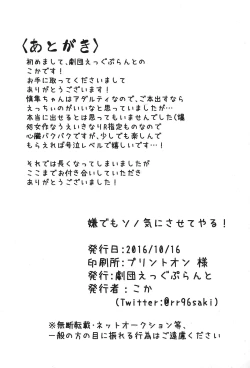 〈あとがき〉
初めまして、劇団えっぐぷらんとの
こかです！
お手に取ってくださいまして
ありがとうございます！
慎隼ちゃんはアダルティなので、ご本出すなら
えっちぃのがいいなと思ってましたが…
本当に出せるとは思ってもいませんでした(爆
処女作なうえいきなりR指定ものなので
心臓バクバクですが、少しでも楽しんで
もらえれば号泣レベルで嬉しいです…！
それでは長くなってしまいましたが
ここまでお付き合いしていただき
ありがとうございました！
嫌でもソノ気にさせてやる！
発行日:2016/10/16
印刷所:プリントオン 様
発行:劇団えっぐぷらんと
発行者：こか
(Twitter:@rr96saki)
※無断転載・ネットオークション等、
一般の方の目に振れる行為はご遠慮ください